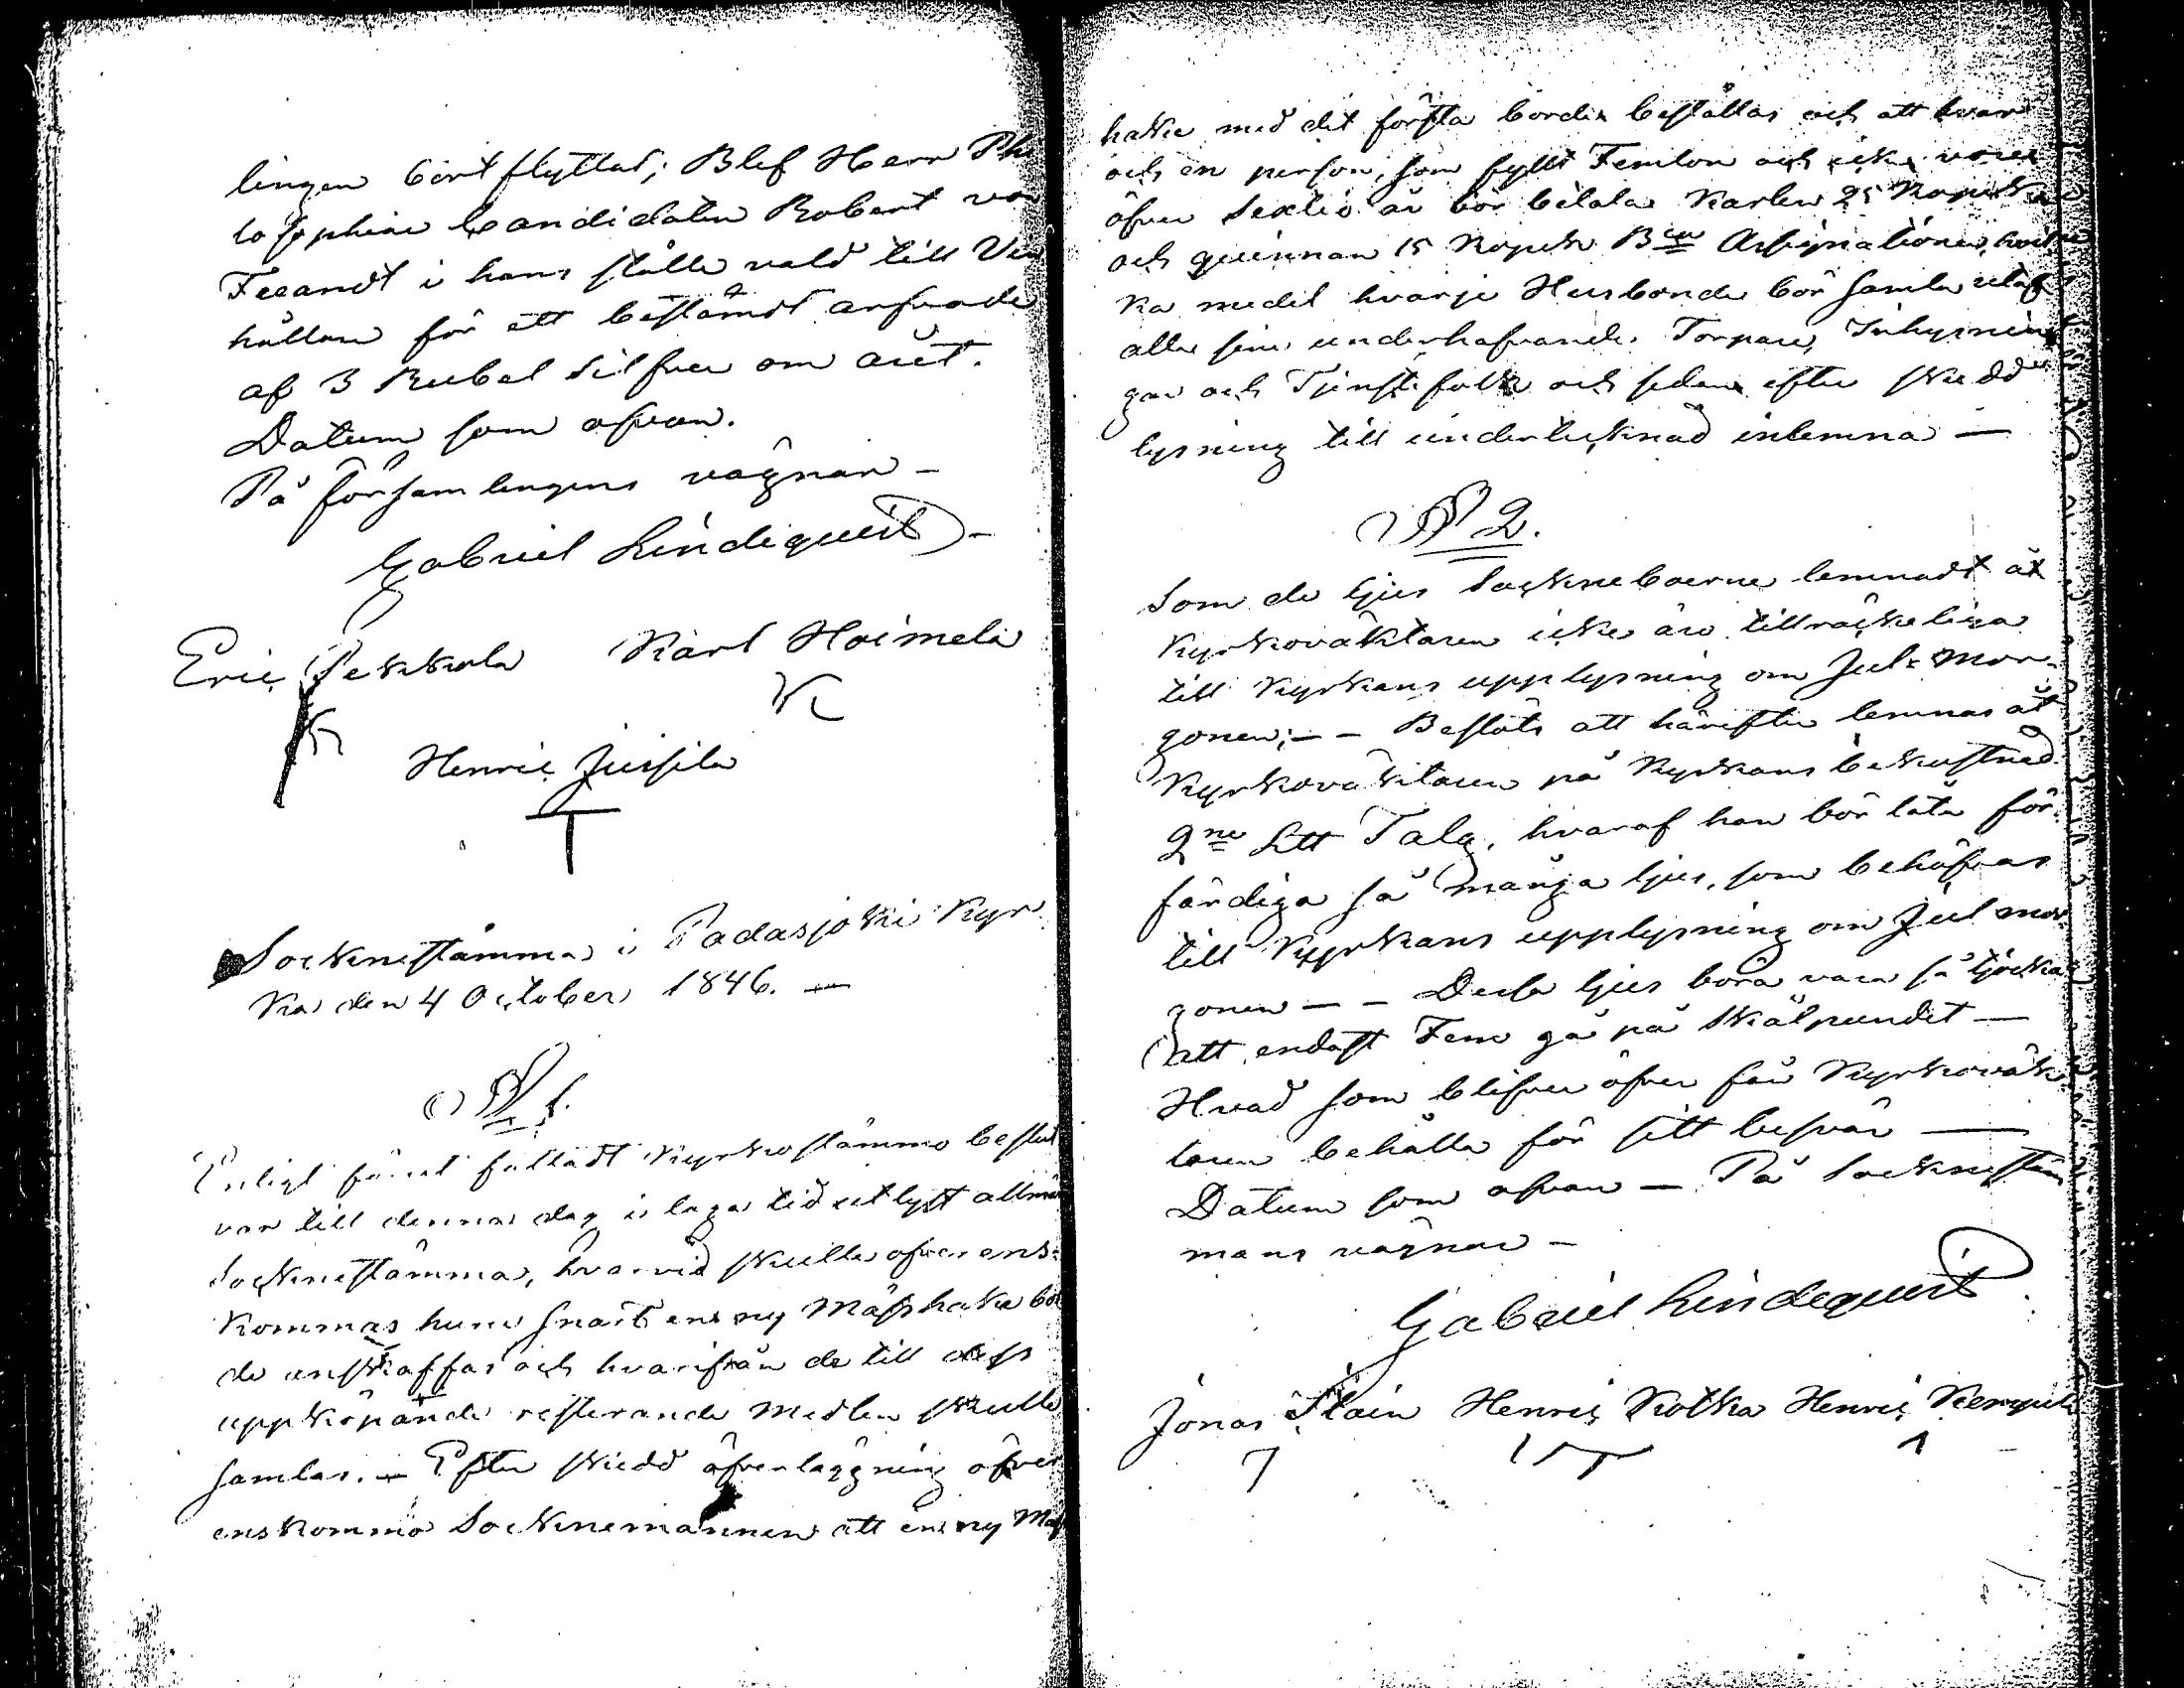 lingen bortflyttat; Blef Herr Phi
losophiæ Candidaten Robert von
Fieandt i hans ställe vald till Vin
hållare för ett bestämdt arfvode
af 3 Rubel Silfver om året.
Datum som ofvan.
På Församlingens vägnar –
Gabriel Lindequist –
Eric Pekkola Karl Hoimela
Henric Jussila
Socknestämma i Padasjoki Kyr
ka den 4 October 1846. –
§ 1.
Enligt förut fattadt Kyrkostämmo beslut
var till denna dag i laga tid utlyst allmän
Socknestämma, hvarvid skulle öfverens=
kommas huru snart en ny Mässhake bor
de anskaffas och hvarifrån de till dess
uppköpande resterande medlen skulle
samlas. – Efter skedd öfverläggning öfver
enskommo Socknemännen att en ny Mäss
hake med det första borde beställas och att hvar
och en person, som fyllt Femton och icke vore
öfver Sextio år bör betala Karlen 25 Kopek
och qvinnan 15 Kopek B:co Assignationer, hvil
ka medel hvarje Husbonde bör samla utaf
alla sina underhafvande Torpare, Inhysnin
gar och Tjenstefolk och sedan efter skedd
lysning till undertecknad inlemna –
§ 2.
Som de ljus Sockneboerne lemnadt åt
Kyrkováktaren icke äro tillräckeliga
till Kyrkans upplysning om Jul= Mor=
gonen; – – Beslöts att härefter lemnas åt
Kyrkoväktaren på Kyrkans bekostnad
2ne Ltt Talg, hvaraf han bör låta för=
färdiga så många ljus, som behöfvas
till Kyrkans upplysning om Jul mor
gonen – – Dessa ljus böra vara så tjocka
att endast Fem gå på Skålpundet –
Hvad som blifver öfver får Kyrkoväk
taren behålla för sitt besvär –
Datum som ofvan – På Socknestäm
mans vägnar –
Gabriel Lindequist
Jonas Henric Kotka Henric